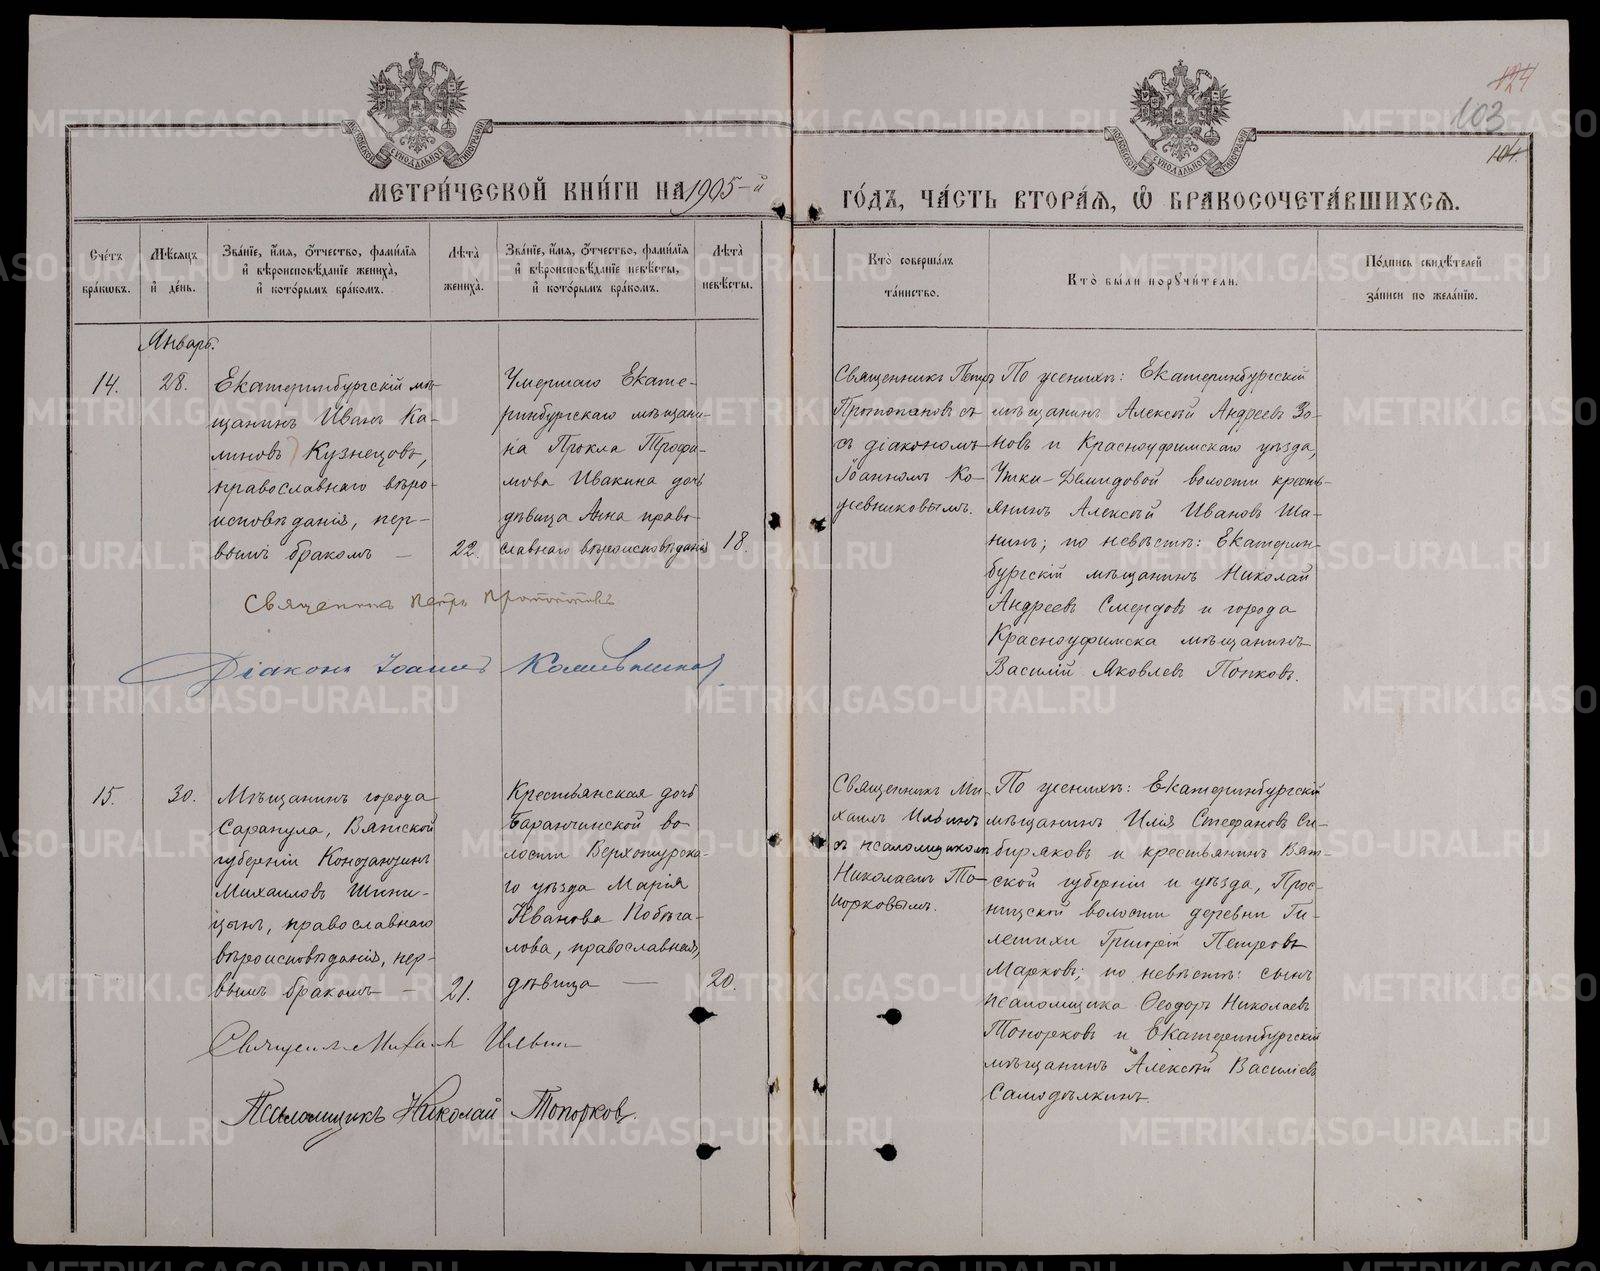 124
103
104
МЕТРИ́ЧЕСКОЙ КНИ́ГИ НА 1905-й
ГО́ДЪ, ЧА́СТЬ ВТОРА́Я, Ѡ БРАКОСОЧЕТА́ВШИХСЯ.
Сче́тъ бра́ковъ.
Мѣ́сяцъ и де́нь.
Зва́нїе, и́мя, о́тчество, фами́лїя и вѣроисповѣ́данїе жениха̀, и кото́рымъ бра́комъ.
Лѣта̀ жениха̀.
Зва́нїе, и́мя, о́тчество, фами́лїя и вѣроисповѣ́данїе невѣ́сты, и кото́рымъ бра́комъ.
Лѣта̀ невѣ́сты.
Кто̀ соверша́лъ та́инство.
Кто̀ бы́ли поручи́тели.
По́дпись свидѣ́телей за́писи по жела́нїю.
Январь.
14.
28.
Екатеринбургскій мѣ-
щанинъ Иванъ Ка-
линовъ Кузнецовъ,
православнаго вѣро-
исповѣданія, пер-
вымъ бракомъ —
22.
Умершаго Екате-
ринбургскаго мѣщани-
на Прокла Трофи-
мова Ивакина дочь
дѣвица Анна право-
славнаго вѣроисповѣданія
18.
Священникъ Петръ
Протопоповъ съ
съ діакономъ
Іоанномъ Ко-
жевниковымъ.
По женихѣ: Екатеринбургскій
мѣщанинъ Алексѣй Андреевъ Зо-
новъ и Красноуфимскаго уѣзда,
Утки-Демидовой волости кресть-
янинъ Алексѣй Ивановъ Ша-
нинъ; по невѣстѣ: Екатерин-
бургскій мѣщанинъ Николай
Андреевъ Смердовъ и города
Красноуфимска мѣщанинъ
Василій Яковлевъ Попковъ.
Священникъ Петръ Протопоповъ
Діаконъ Іоаннъ
15.
30.
Мѣщанинъ города
Сарапула, Вятской
губерніи
Михаиловъ Шини-
цынъ, православнаго
вѣроисповѣданія, пер-
вымъ бракомъ —
21.
Крестьянская дочь
Баранчинской во-
лости Верхотурска-
го уѣзда Марія
Иванова Побѣга-
лова, православная,
дѣвица —
20.
Священникъ Ми-
хаилъ Ильинъ
съ псаломщикомъ
Николаемъ То-
порковымъ.
По женихѣ: Екатеринбургскій
мѣщанинъ Илія Стефановъ Си-
биряковъ и крестьянинъ Вят-
ской губерніи и уѣзда, Прос-
ницкой волости деревни Ги-
летихи Григорій Петровъ
Марковъ; по невѣстѣ: сынъ
псаломщика Ѳеодоръ Николаевъ
Топорковъ и Екатеринбургскій
мѣщанинъ Алексѣй Василіевъ
Самодѣлкинъ.
Священникъ Михаилъ Ильинъ
Псаломщикъ Николай Топорковъ.
METRIKI.GASO-URAL.RU